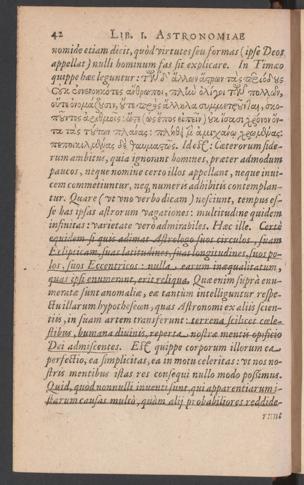 42 LIB. I. ASTRONOMIAE
nomide etiam dicit, quòd virtutes seu formas (ipse Deos
appellat) nulli hominum fas sit explicare. In Timæo
quippe hæc leguntur:
Id est: Cæterorum side-
rum ambitus, quia ignorant homines, præter admodum
paucos, neque nomine certo illos appellant, neque inui-
cem commetiuntur, neq; numeris adhibitis contemplan-
tur. Quare (vt vno verbo dicam) nesciunt, tempus es-
se has ipsas astrorum vagationes: multitudine quidem
infinitas: varietate verò admirabiles. Hæc ille. Certè
equidem si quis adimat Astrologo suos circulos, suam
Eclipticam, suas latitudines, suas longitudines, suos po-
los, suos Eccentricos: nulla earum inæqualitatum,
quas ipsi enumerant, erit reliqua. Quæ enim suprà enu-
meratæ sunt anomaliæ, eæ tantùm intelliguntur respe-
ctu illarum hypotheseon, quas Astronomi ex aliis scien-
tiis, in suam artem transferunt: terrena scilicet cæle-
stibus, humana diuinis, reperta nostræ mentis opificio
Dei admiscentes. Est quippe corporum illorum ea
perfectio, ea simplicitas, ea in motu celeritas: vt nos no-
stris mentibus istas res consequi nullo modo possimus.
Quid, quod nonnulli inuenti sunt, qui apparentiarum i-
starum causas multò, quàm alij probabiliores reddide-
runt